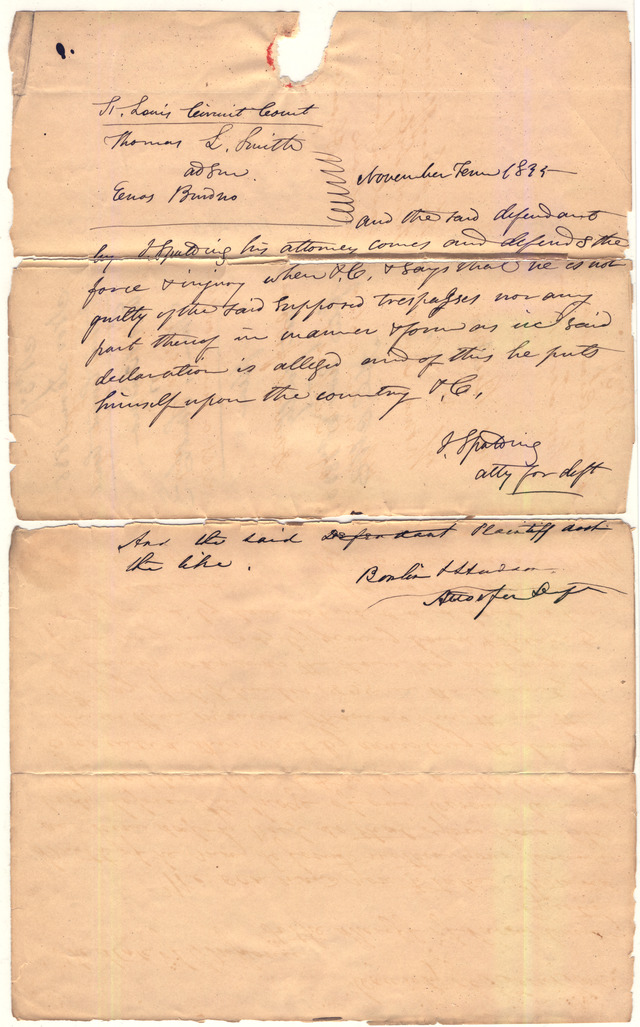 St. Louis Circuit Court
Thomas L. Smith
adsm.
Enos
November Term 1835
and the said defendant
by J. Spalding his attorney comes and defends the
force & injury when &C, & says that he is not
guilty of the said supposed trespasses nor any
part thereof in manner & form as in said
declaration is alleged and of this he puts
himself upon the country &C,
J. Spalding
atty for deft
And the said Defendant Plaintiff doth
the like.
for Deft